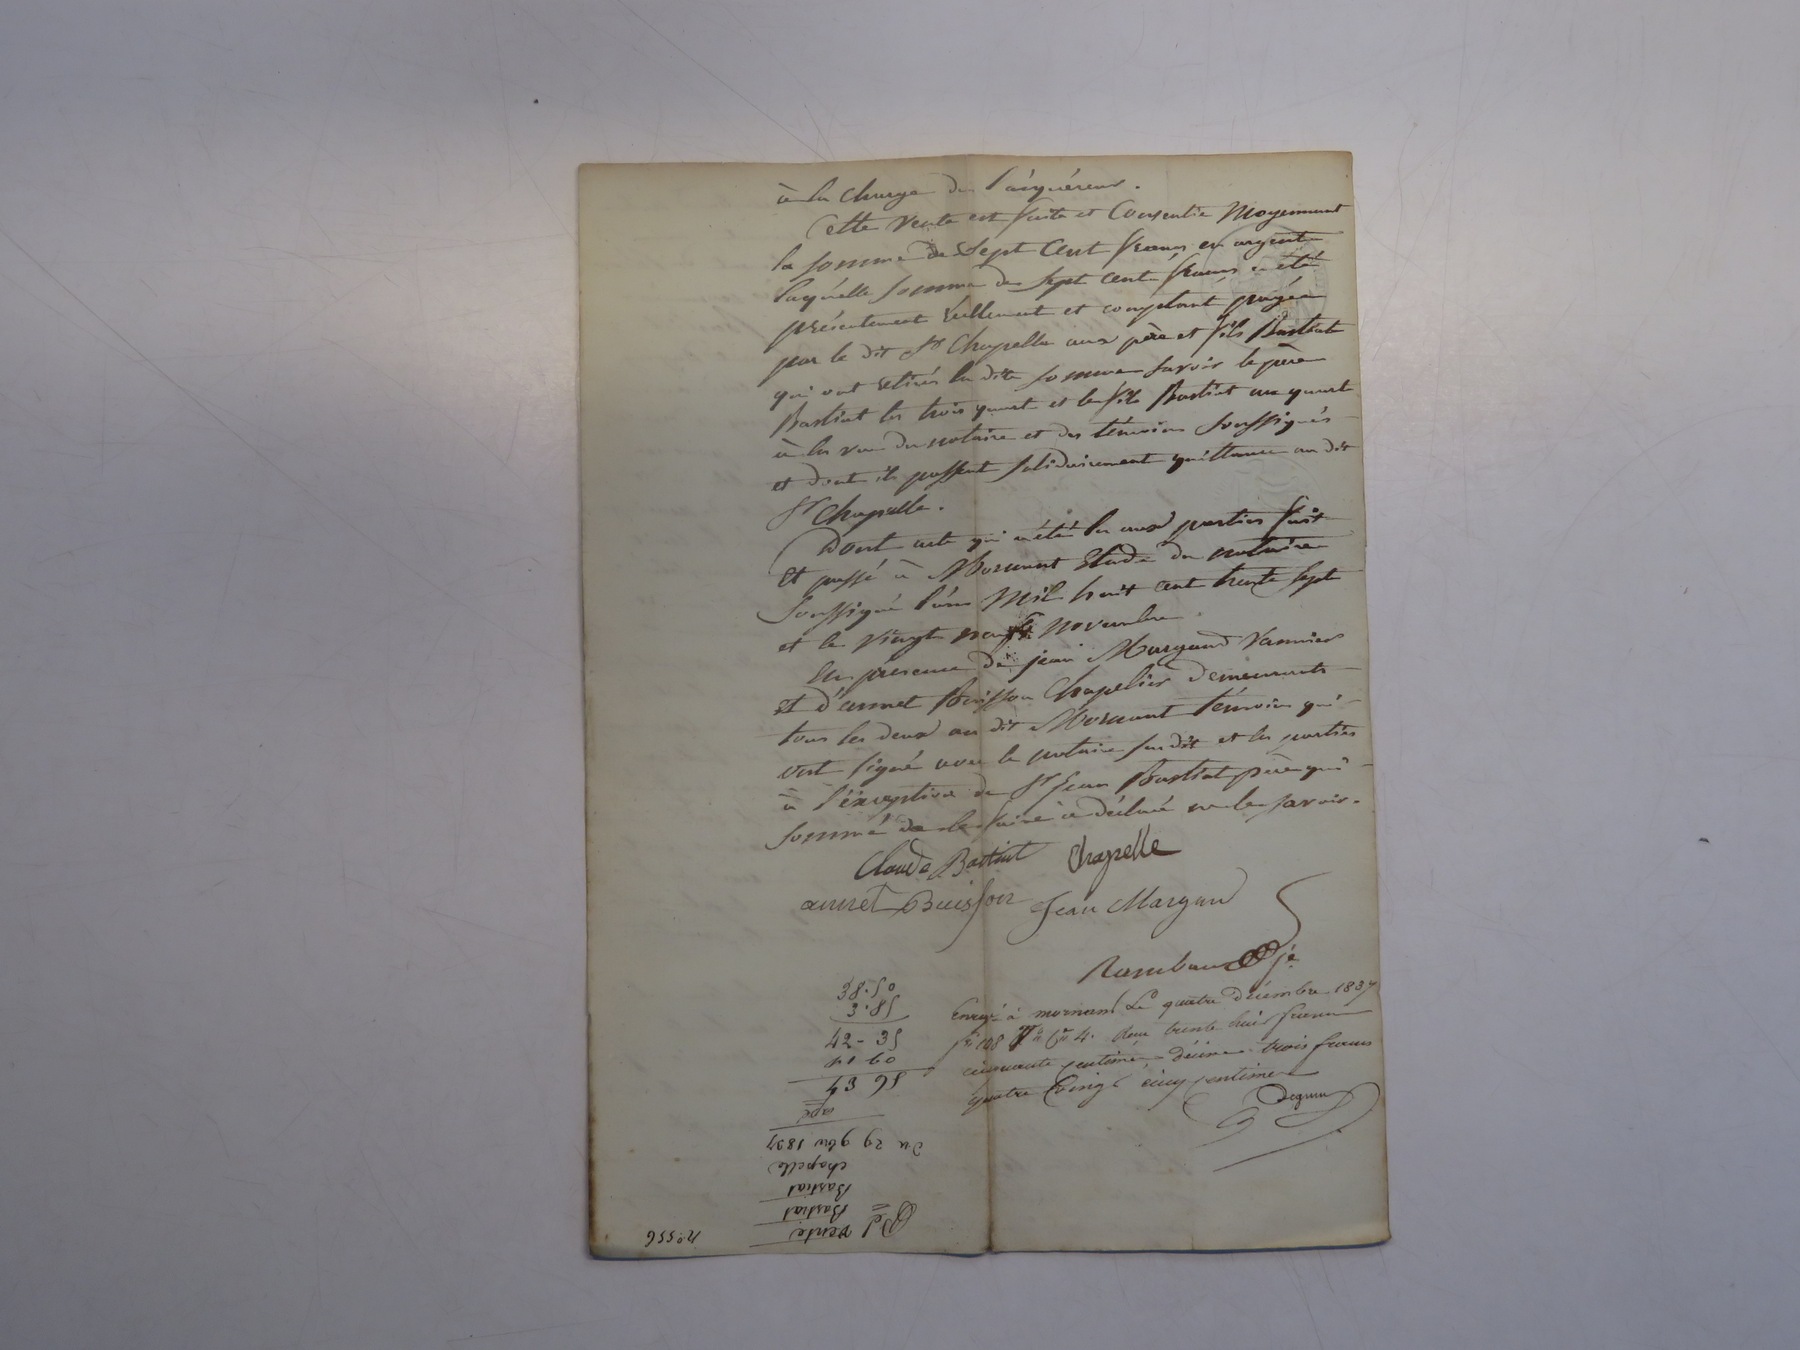 à la charge de l'acquéreur.
Cette vente est faite et Consentie Moyennant
la somme de Sept Cent francs en argent
laquelle somme de Sept cent francs a été
présentement réellement et comptant payée
par le dit Sr Chapelle aux père et fils Bastiat
qui ont retirés la dite somme savoir le père
Bastiat les trois quart et le fils Bastiat un quart
à la vue du notaire et des témoins soussignés
et dont ils passent solidairement quittance au dit
Sr Chapelle.
Dont acte qui a été lu aux parties fait
et passé à Mornant Etude du notaire
soussigné l'an Mil huit cent trente sept
et le vingt neuf novembre
En présence de jean Margand Vannier
et d'annet Buisson Chapelier demeurants
tous les deux au dit Mornant témoins qui
ont signé avec le notaire susdit et les parties
à l'exception de Sr Jean Bastiat père qui
sommé de le faire a déclaré ne le savoir.
Claude Bastiat Chapelle
annet Buisson Jean Margand
Rambaud
Enregé à mornant Le quatre décembre 1837
fo 108 Vo Ce 4. Reçu trente huit francs
cinquante centimes, décime trois francs
quatre vingt cinq centimes
38.50
3.85
42-35
1 60
43 95
Du 29 9bre 1837
chapelle
Bastiat
Bastiat
vente
No 556